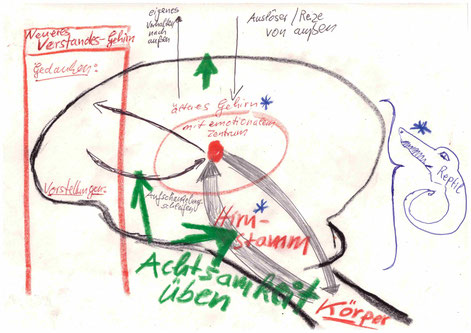 Neueres
Verstandes-Gehirn
Gedanken:
Vorstellungen:
eigenes
Verhalten
nach
außen
Auslöser/Reize
von außen
älteres Gehirn*
mit emotionalem
Zentrum
Hirn-*
stamm
Achtsamkeit
üben
Körper
*
Reptil